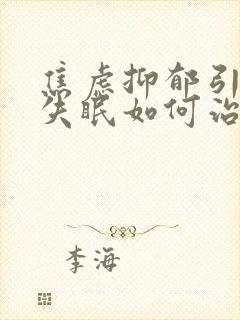 焦虑抑郁引
失眠如何治
李海